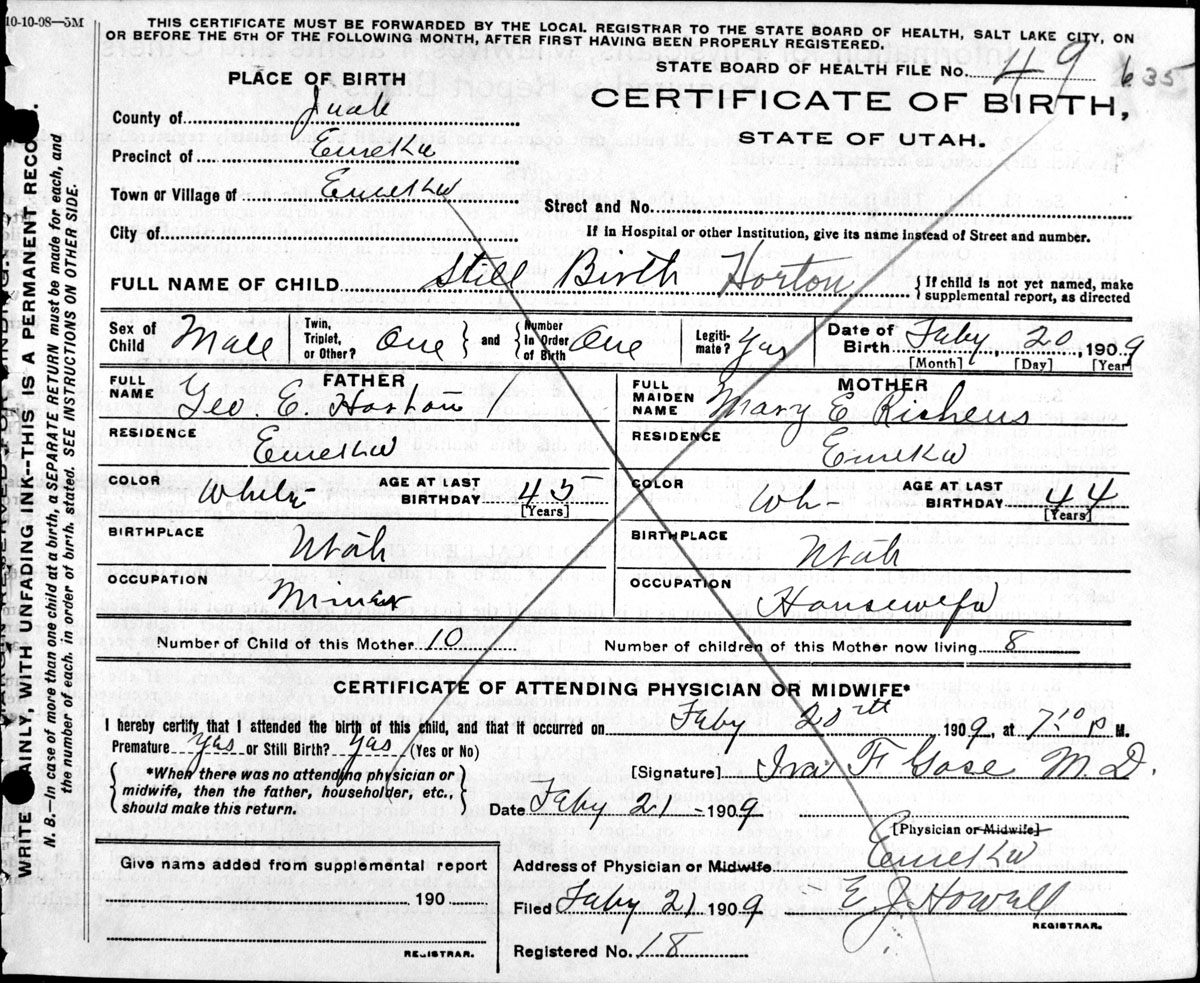 10-10-98—5M
THIS CERTIFICATE MUST BE FORWARDED BY THE LOCAL REGISTRAR TO THE STATE BOARD OF HEALTH, SALT LAKE CITY, ON
OR BEFORE THE 5TH OF THE FOLLOWING MONTH, AFTER FIRST HAVING BEEN PROPERLY REGISTERED.
STATE BOARD OF HEALTH FILE No. 49 635
PLACE OF BIRTH
CERTIFICATE OF BIRTH,
STATE OF UTAH.
County of Juab
Precinct of Eureka
Town or Village of Eureka
Street and No.
City of
If in Hospital or other Institution, give its name instead of Street and number.
FULL NAME OF CHILD Still Birth Horton
{ If child is not yet named, make supplemental report, as directed
Sex of Child Male
Twin, Triplet, or Other? One } and { Number In Order of Birth One
Legiti-mate? Yes
Date of Birth Feby, 20, 1909
[Month] [Day] [Year]
FATHER
FULL NAME Geo. E. Horton
RESIDENCE Eureka
COLOR White AGE AT LAST BIRTHDAY 45
[Years]
BIRTHPLACE Utah
OCCUPATION Miner
MOTHER
FULL MAIDEN NAME Mary E Richens
RESIDENCE Eureka
COLOR Wh- AGE AT LAST BIRTHDAY 44
[Years]
BIRTHPLACE Utah
OCCUPATION Housewife
Number of Child of this Mother 10 Number of children of this Mother now living 8
CERTIFICATE OF ATTENDING PHYSICIAN OR MIDWIFE*
I hereby certify that I attended the birth of this child, and that it occurred on Feby 20th 1909, at 7:10 P M.
Premature Yes or Still Birth? Yes (Yes or No)
{ *When there was no attending physician or midwife, then the father, householder, etc., should make this return. }
[Signature] Ira F Gose M.D.
Date Feby 21- 1909
[Physician or Midwife]
Address of Physician or Midwife Eureka
Give name added from supplemental report
190
REGISTRAR.
Filed Feby 21 1909 E J Howell
REGISTRAR.
Registered No. 18
WRITE PLAINLY, WITH UNFADING INK--THIS IS A PERMANENT RECO
N. B.—In case of more than one child at a birth, a SEPARATE RETURN must be made for each, and
the number of each, in order of birth, stated. SEE INSTRUCTIONS ON OTHER SIDE.